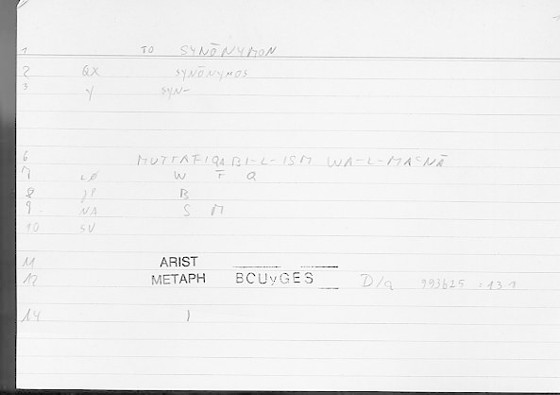 1 TO SYNŌNYMON
2 QX SYNŌNYMOS
3 Y SYN-
6 MUTTAFIQA BI-L-ISM WA-L-MAʿNĀ
7 LO W T Q
8 JP B
9 NA S M
10 SV
11 ARIST
12 METAPH BOUYGES D/a 993b25 :131
14 1